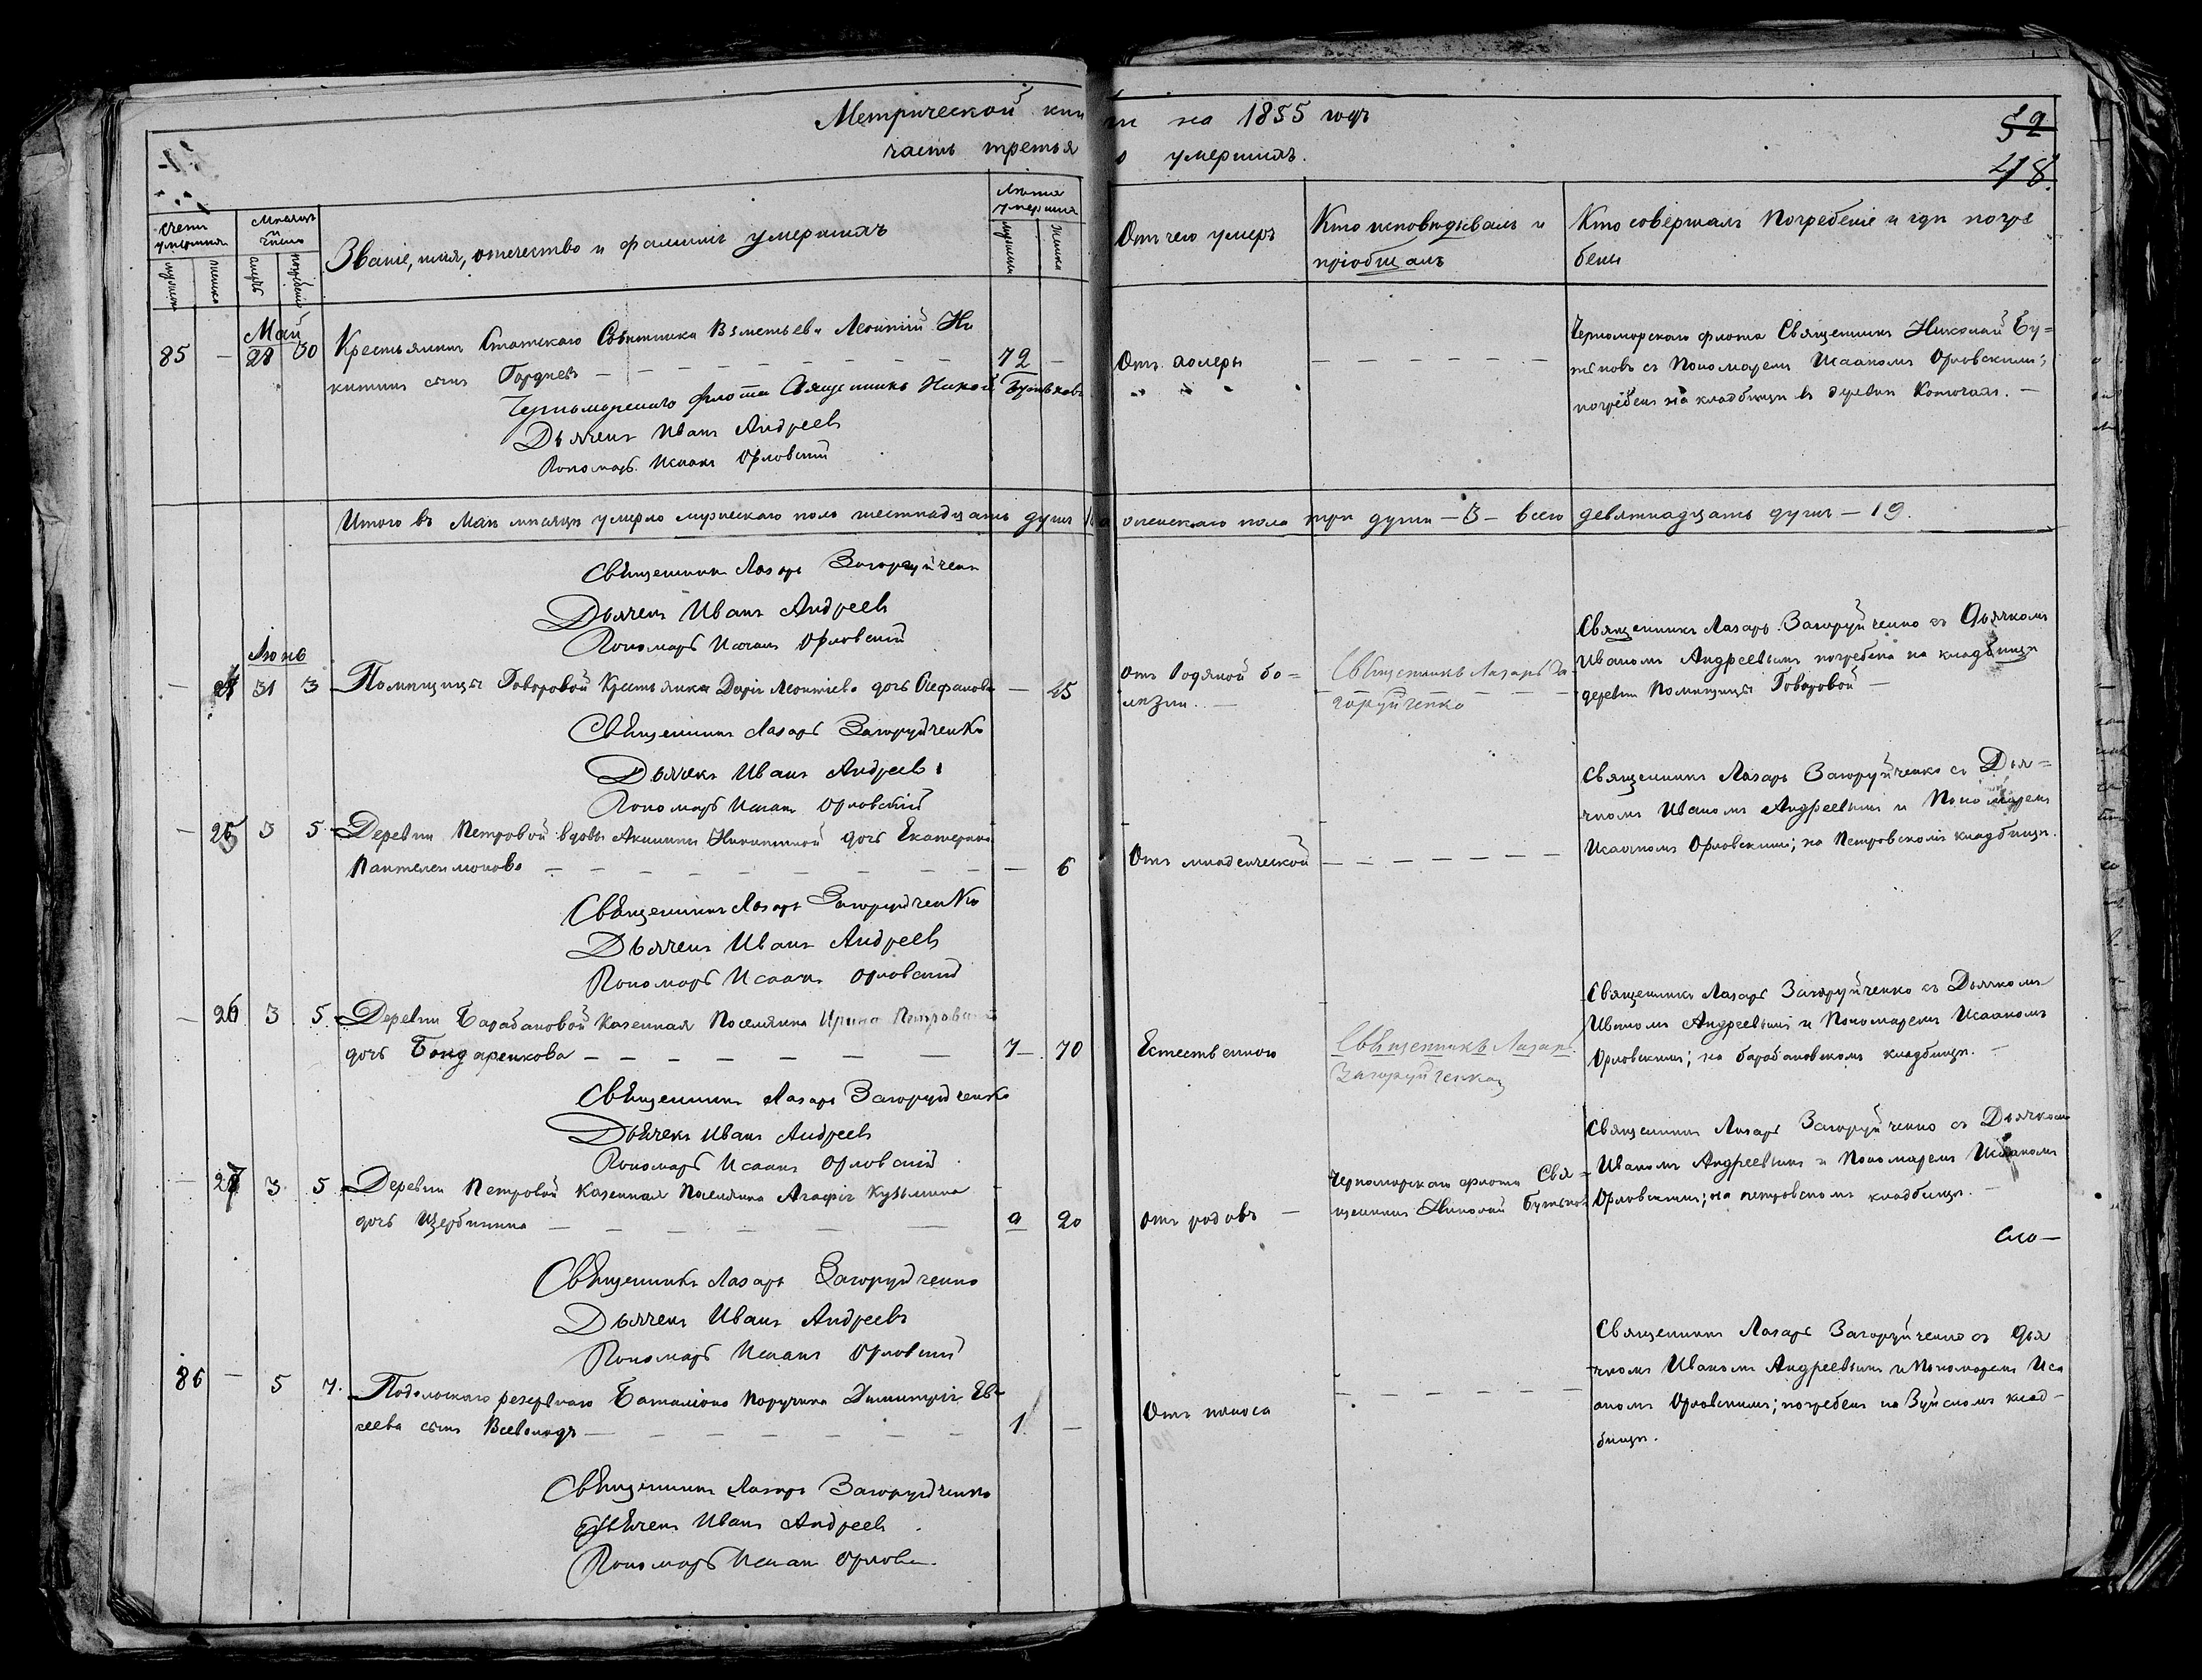 Метрической книги на 1855 годъ
часть третья о умершихъ.
52
48.
Счетъ умершихъ
Мѣсяцъ и число
Званіе, имя, отечество и фамилія умершихъ
Лѣта умершихъ
Отъ чего умеръ
Кто исповѣдывалъ и
пріобщалъ
Кто совершалъ погребеніе и гдѣ погре
бены
мужеска
женска
Май
85 — 28 30 Крестьянинъ Статскаго Совѣтника Леонтій Ни
китинъ сынъ Гордѣевъ — 72 —
Отъ холеры
Черноморскаго флота Священникъ Николай Бу=
тьковъ съ Пономаремъ Исаакомъ Орловскимъ;
погребенъ на кладбищѣ въ деревни
Черноморскаго флота Священникъ Никой Бутьковъ
Дьячекъ Иванъ Андреевъ
Пономарь Исаакъ Орловскій
Итого въ Маѣ мѣсяцѣ умерло мужескаго пола шестнадцать душъ женскаго пола три души — 3 — всего девятнадцать душъ — 19.
Священникъ Лазарь Загоруйченко
Дьячекъ Иванъ Андреевъ
Пономарь Исаакъ Орловскій
Іюнь
— 24 31 3 Помѣщицы Говоровой Крестьянка Дарія Леонтіева дочь Стефанова — 25
Отъ водяной бо=
лѣзни. —
Священникъ Лазарь За
горуйченко
Священникъ Лазарь Загоруйченко съ Дьячкомъ
Иваномъ Андреевымъ погребена на кладбищѣ
деревни Помѣщицы Говоровой —
Священникъ Лазарь Загоруйченко
Дьячекъ Иванъ Андреевъ
Пономарь Исаакъ Орловскій
— 25 3 5 Деревни Петровой вдовы Акилины Никитиной дочь Екатерина
Пантелеимонова — 6
Отъ младенческой
Священникъ Лазарь Загоруйченко съ Дья=
чкомъ Иваномъ Андреевымъ и Пономаремъ
Исаакомъ Орловскимъ; на Петровскомъ кладбищѣ.
Священникъ Лазарь Загоруйченко
Дьячекъ Иванъ Андреевъ
Пономарь Исаакъ Орловскій
— 26 3 5 Деревни Барабановой Казенная Поселянка Ирина Петрова
дочь Бондаренкова — 70
Естественною
Священникъ Лазарь
Загоруйченко
Священникъ Лазарь Загоруйченко съ Дьячкомъ
Иваномъ Андреевымъ и Пономаремъ Исаакомъ
Орловскимъ; на барабановскомъ кладбищѣ. —
Священникъ Лазарь Загоруйченко
Дьячекъ Иванъ Андреевъ
Пономарь Исаакъ Орловскій.
— 27 3 5 Деревни Петровой Казенная Поселянка Агафія Кузьмина
дочь Щербинина — 20
Отъ родовъ —
Черноморскаго флота Свя=
щенникъ Николай Бутьковъ
Священникъ Лазарь Загоруйченко съ Дьячкомъ
Иваномъ Андреевымъ и Пономаремъ Исаакомъ
Орловскимъ; на петровскомъ кладбищѣ. —
Священникъ Лазарь Загоруйченко
Дьячекъ Иванъ Андреевъ
Пономарь Исаакъ Орловскій
86 — 5 7. Подольскаго резервнаго Баталіона Поручика Димитрія Ев=
сеева сынъ Всеволодъ — 1 —
Отъ поноса
Священникъ Лазарь Загоруйченко съ дья
чкомъ Иваномъ Андреевымъ и Пономаремъ Иса
акомъ Орловскимъ; погребенъ на Зуйскомъ клад=
бищѣ.
Священникъ Лазарь Загоруйченко
Дьячекъ Иванъ Андреевъ
Пономарь Исаакъ